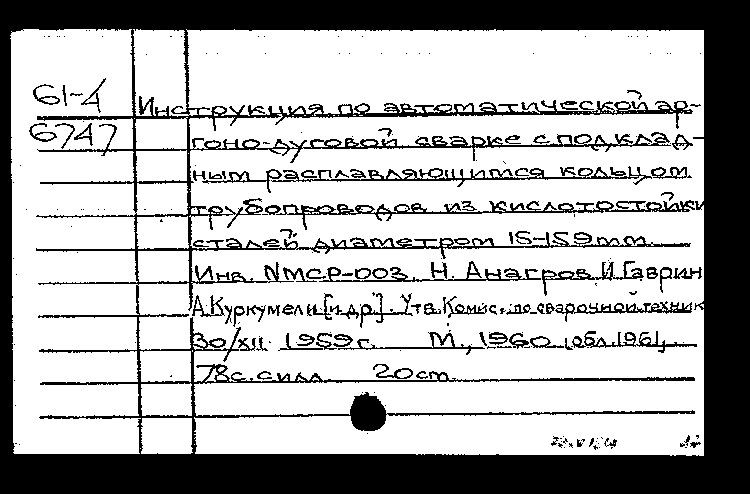 61-4
Инструкция по автоматической ар-
6747
гоно-дуговой сварке с подклад-
ным расплавляющимся кольцом
трубопроводов из кислотостойки
сталей диаметром 15-159 mm.
Инв. NMCP-003. Н. Анагров, И. Гаврин
А. Куркумели [и др.]. Утв. Комис. по сварочной техник
30/XII 1959 г. М., 1960 (обл. 1961),
78 с. с илл. 20 cm